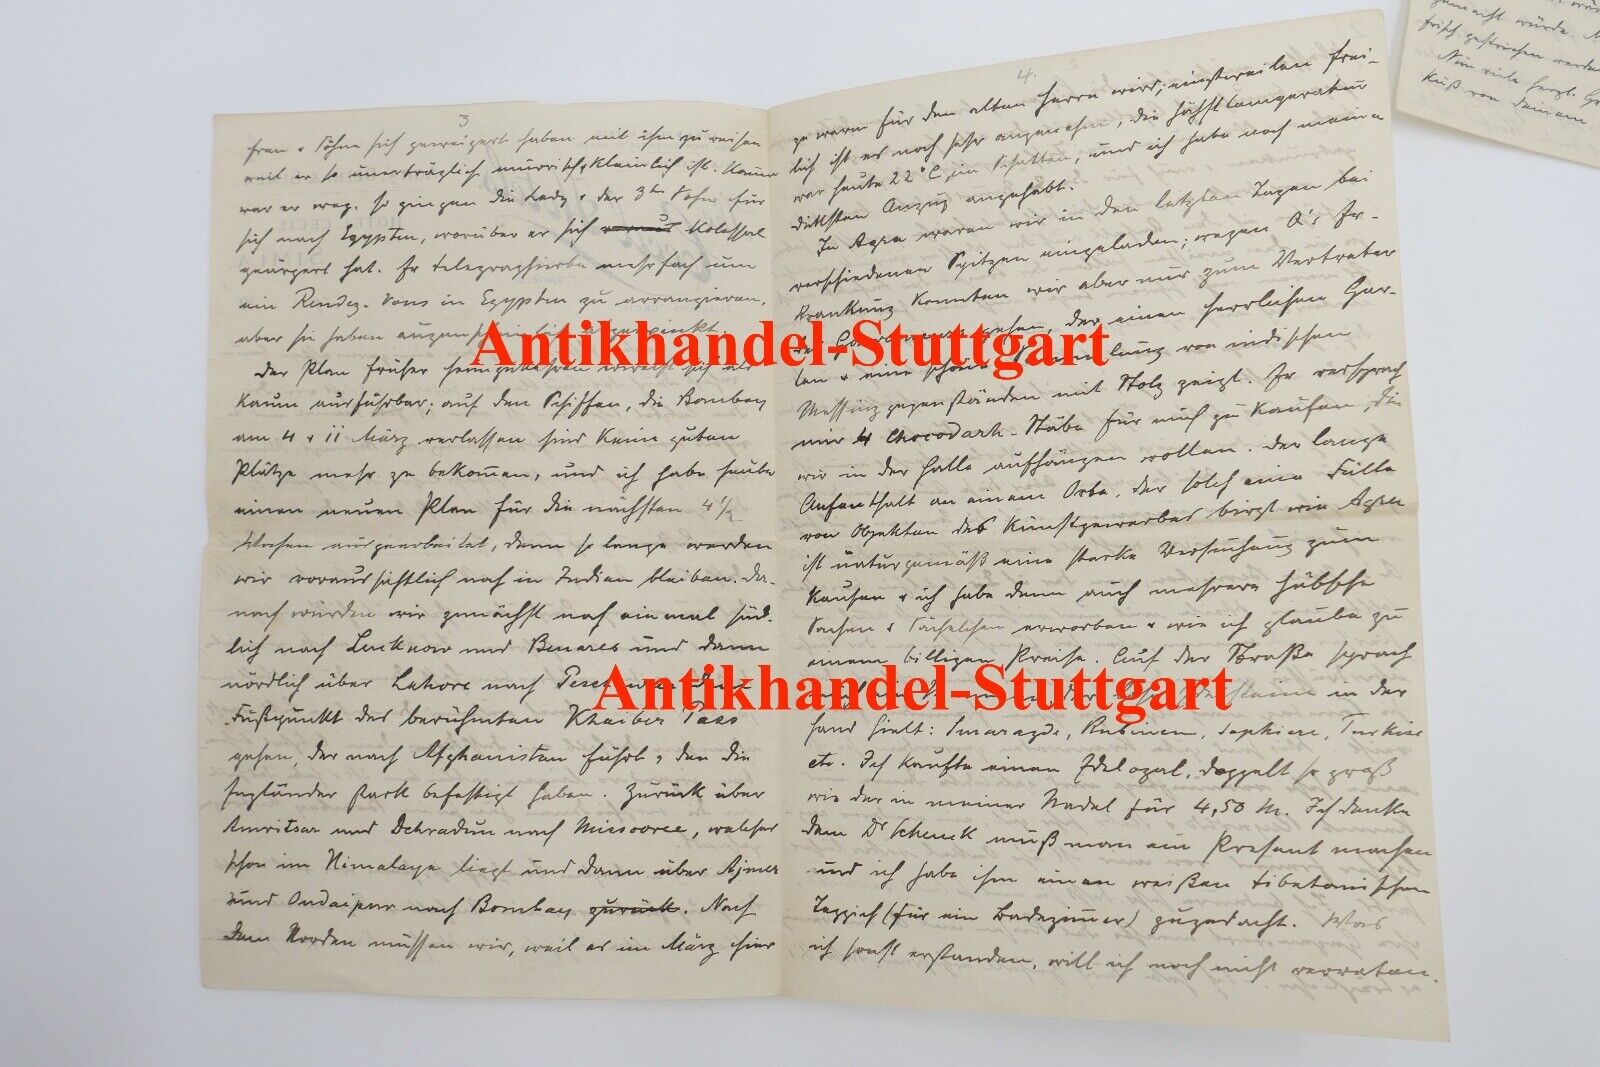 3
Frau & Söhne sich geweigert haben mit ihm zu reisen
weil er so unerträglich mürrisch & kleinlich ist. Kaum
war er weg, so gingen die Lady & der 3te Sohn für
sich nach Egypten, worüber er sich kolossal
geärgert hat. Er telegraphierte mehrfach um
ein Rendez-Vous in Egypten zu arrangieren,
aber sie haben augenscheinlich abgewinkt.
Der Plan früher heimzukehren erweist sich als
kaum ausführbar; auf den Schiffen, die Bombay
am 4 & 11 März verlassen sind keine guten
Plätze mehr zu bekommen, und ich habe heute
einen neuen Plan für die nächsten 4 1/2
Wochen ausgearbeitet, denn so lange werden
wir voraussichtlich noch in Indien bleiben. Da-
nach würden wir zunächst noch einmal süd-
lich nach Lucknow und Benares und dann
nördlich über Lahore nach Peschawar dem
Fußpunkt des berühmten Khaiber Pass
gehen, der nach Afghanistan führt & den die
Engländer stark befestigt haben. Zurück über
Amritsar und Dehradun nach Missooree, welches
schon im Himalaya liegt und dann über Ajmer
und Oudaipur nach Bombay zurück. Nach
dem Norden müssen wir, weil es im März hier
4.
zu warm für den alten Herrn wird; einstweilen frei-
lich ist es noch sehr angenehm, die höchst Temperatur
war heute 22° C im Schatten, und ich habe noch meinen
dicksten Anzug angehabt.
In Agra waren wir in den letzten Tagen bei
verschiedenen Spitzen eingeladen; wegen O's Er-
krankung konnten wir aber nur zum Vertreter
des Gouvernements gehen, der einen herrlichen Gar-
ten & eine schöne Sammlung von indischen
Messinggegenständen mit Stolz zeigt. Er versprach
mir 4 Stäbe für mich zu kaufen, die
wir in der Halle aufhängen wollen. Der lange
Aufenthalt an einem Orte, der solch eine Fülle
von Objekten des Kunstgewerbes birgt wie Agra
ist naturgemäß eine starke Versuchung zum
Kaufen & ich habe denn auch mehrere hübsche
Sachen & Sächelchen erworben & wie ich glaube zu
einem billigen Preise. Auf der Straße sprach
mich ein an, der Edelsteine in der
Hand hielt: Smaragde, Rubinen, Saphire, Türkise
etc. Ich kaufte einen Edelopal, doppelt so groß
wie der in meiner Nadel für 4,50 M. Ich denke
dem Dr Schenck muß man ein Present machen
und ich habe ihm einen weißen tibetanischen
Teppich (für ein Badezimmer) zugedacht. Was
ich sonst erstanden, will ich noch nicht verraten.
gemacht würde.
frisch gestrichen werden
Nun viele herzl.
Kuß von Deinem
Antikhandel-Stuttgart
Antikhandel-Stuttgart